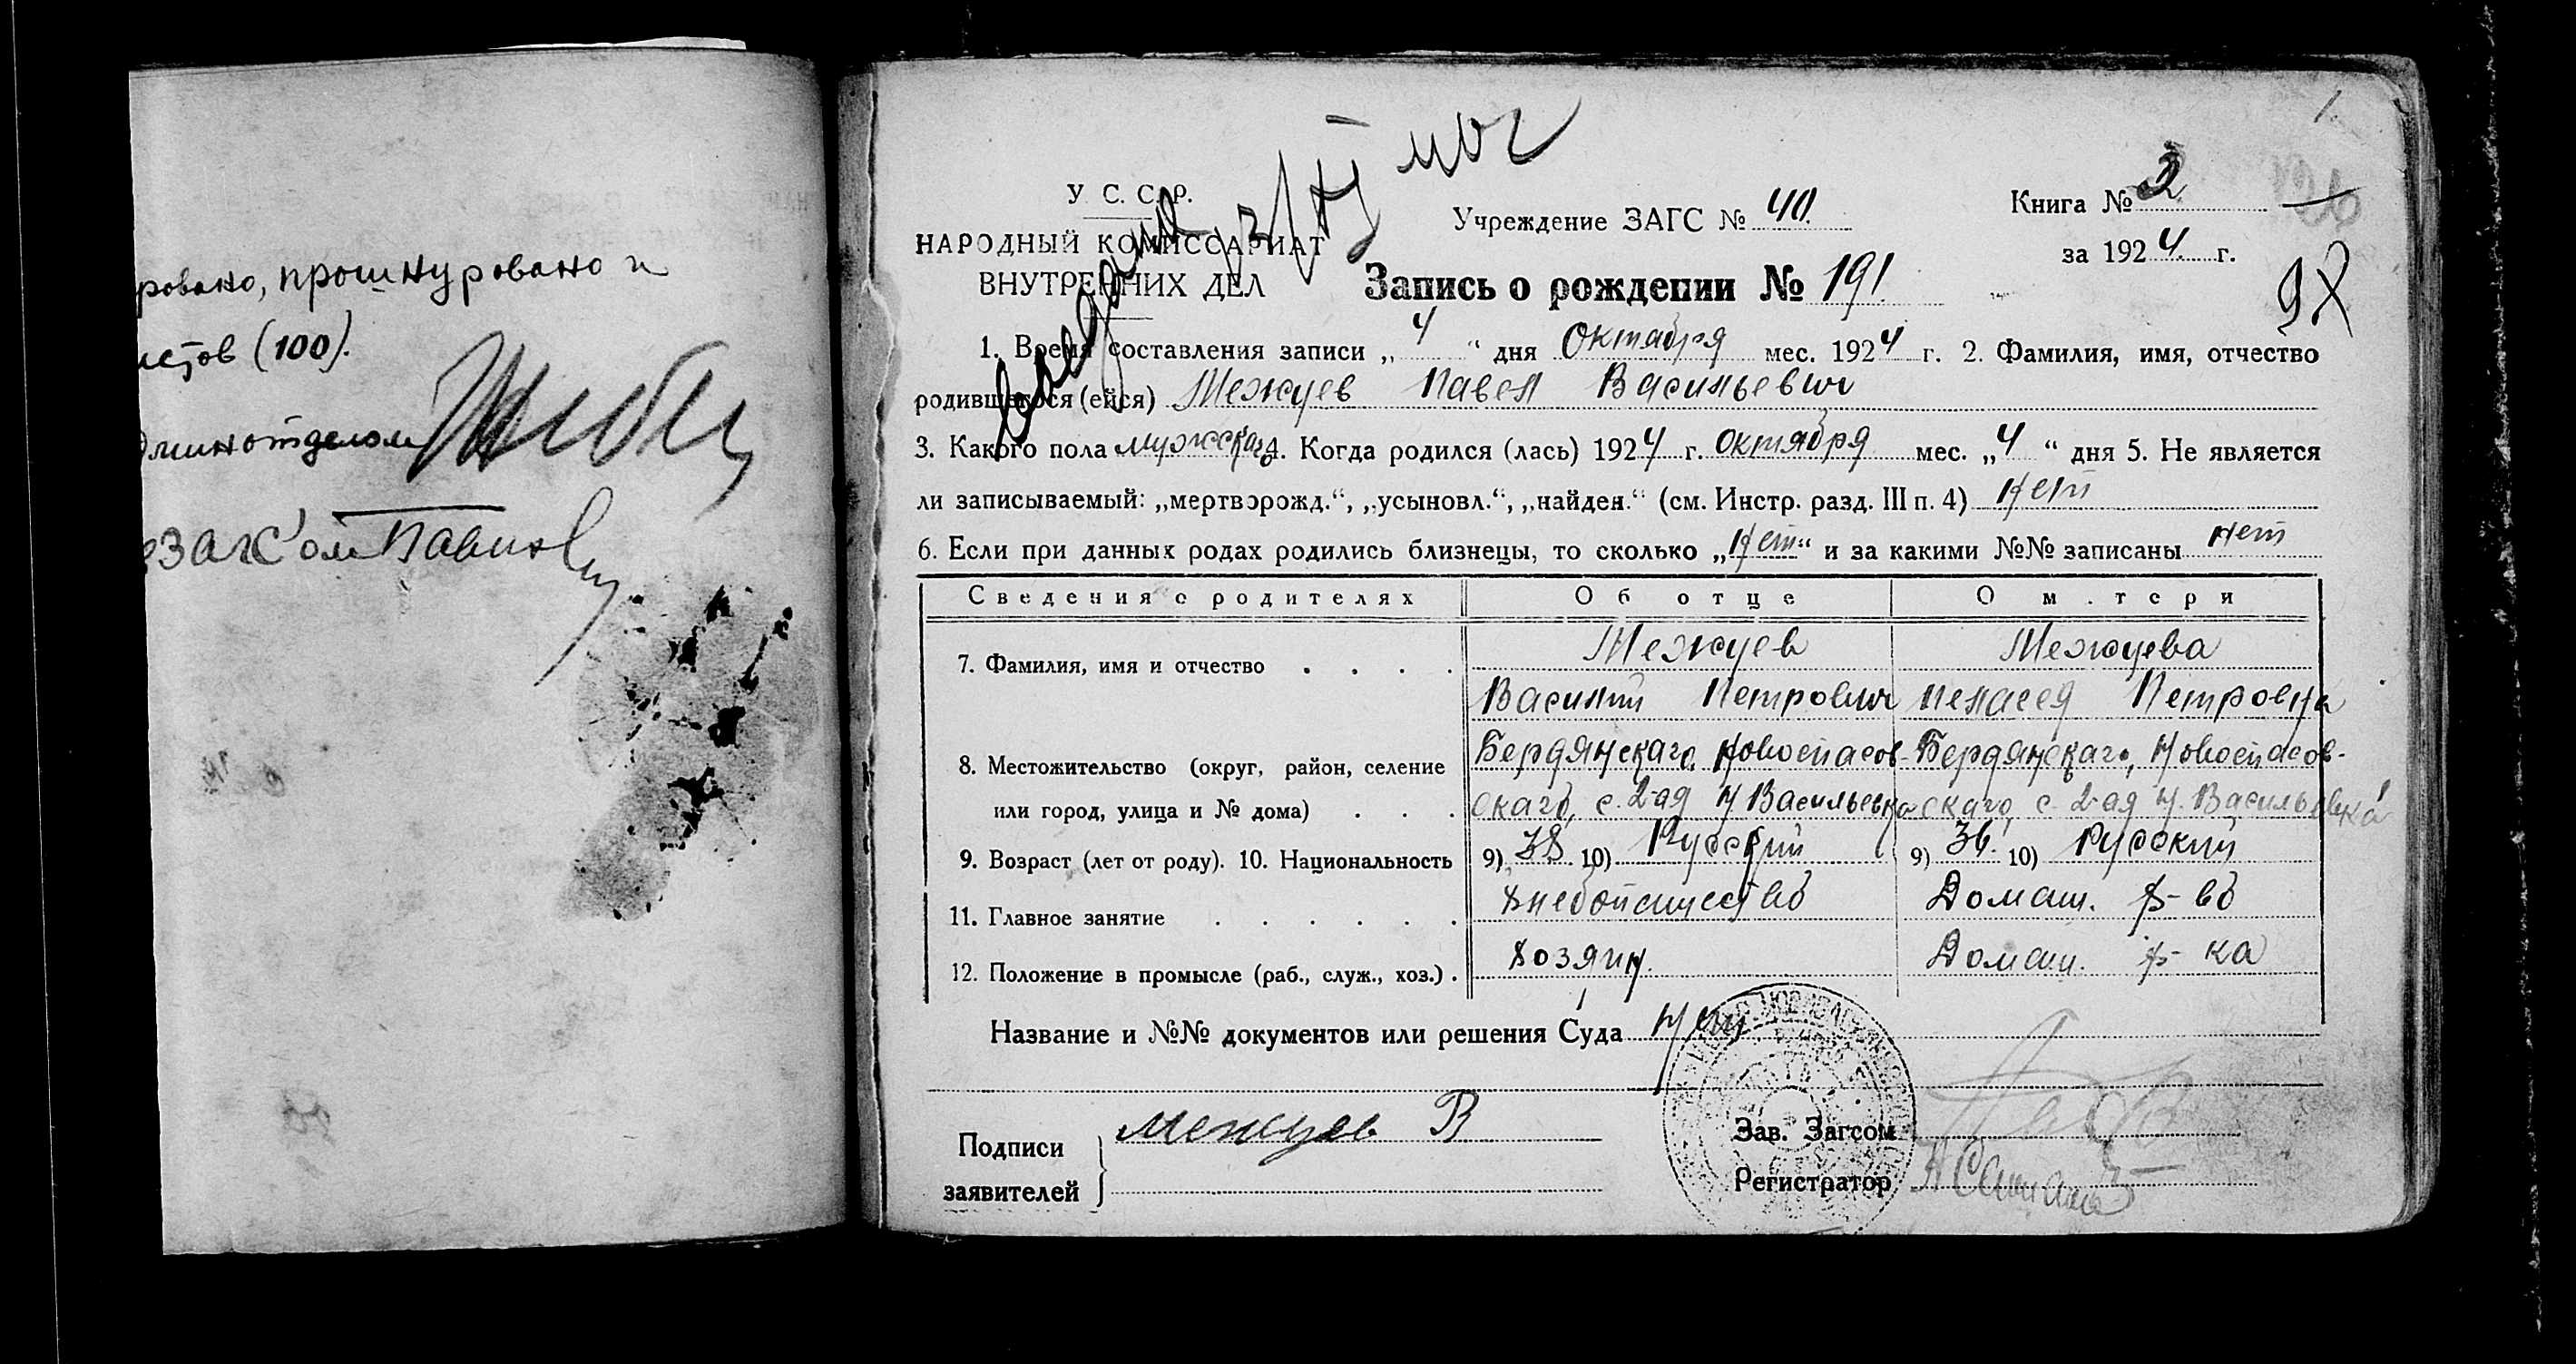 ровано, прошнуровано и
листов (100).
дминотделом
Загс'ом
1.
У. С. С. Р.
НАРОДНЫЙ КОМИССАРИАТ
ВНУТРЕННИХ ДЕЛ
Учреждение ЗАГС № 40.
Книга № 2
за 1924 г.
Запись о рождении № 191
1. Время составления записи „4“ дня Октября мес. 1924 г. 2. Фамилия, имя, отчество
родившегося (ейся) Межуев Павел Васильевич
3. Какого пола мужскаго 4. Когда родился (лась) 1924 г. Октября мес. „4“ дня 5. Не является
ли записываемый: „мертворожд.“, „усыновл.“, „найден.“ (см. Инстр. разд. III п. 4) нет
6. Если при данных родах родились близнецы, то сколько „нет“ и за какими №№ записаны нет
Сведения о родителях Об отце О м.тери
7. Фамилия, имя и отчество . . . . Межуев Межуева
Василий Петрович Пелагея Петровна
8. Местожительство (округ, район, селение Бердянскаго, Новоспасов- Бердянскаго, Новоспасов-
или город, улица и № дома) . . . скаго, с. 2-ая Н Васильевка скаго, с. 2-ая Н. Васильевка
9. Возраст (лет от роду). 10. Национальность 9) 38 10) Русский 9) 36. 10) Русский
11. Главное занятие . . . . . . Хлебопашество Домаш. х-во
12. Положение в промысле (раб., служ., хоз.) . Хозяин. Домаш. х-ка
Название и №№ документов или решения Суда нет
Подписи
заявителей
Межуев В
Зав. Загсом
Регистратор